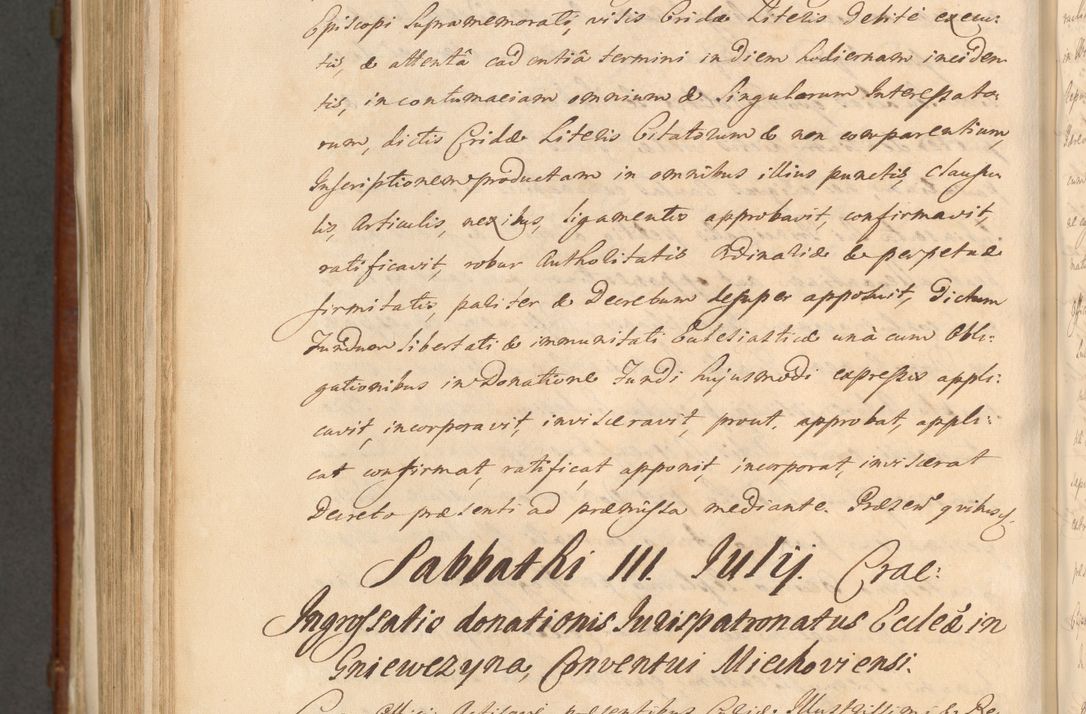 Episcopi supramemorati, visis Cridæ Literis debitè execu:
tis, & attentâ cadentiâ termini in diem hodiernam inciden
tis, in contumaciam omnium & singulorum Interessato:
rum, dictis Cridæ Literis Citatorum & non comparentium,
Inscriptionem productam in omnibus illius punctis, clausu
lis, Articulis, nexibus, ligamentis approbavit, confirmavit,
ratificavit, robur Authoritatis Ordinariæ & perpetuæ
firmitatis, pariter & Decretum desuper apposuit, Dictum
Fundum libertati & immunitati Ecclesiasticæ unà cum Obli:
gationibus in Donatione Fundi hujusmodi expressis appli:
cavit, incorporavit, invisceravit, prout, approbat, appli:
cat confirmat, ratificat, apponit, incorporat, inviscerat
Decreto præsenti ad præmissa mediante. Præsen quibus
Sabbathi III. Iulij. Crac:
Ingrossatio donationis Iurispatronatus Eccleæ in
Gniewczyna, Conventui Miechoviensi.
Illustrissimi & Re